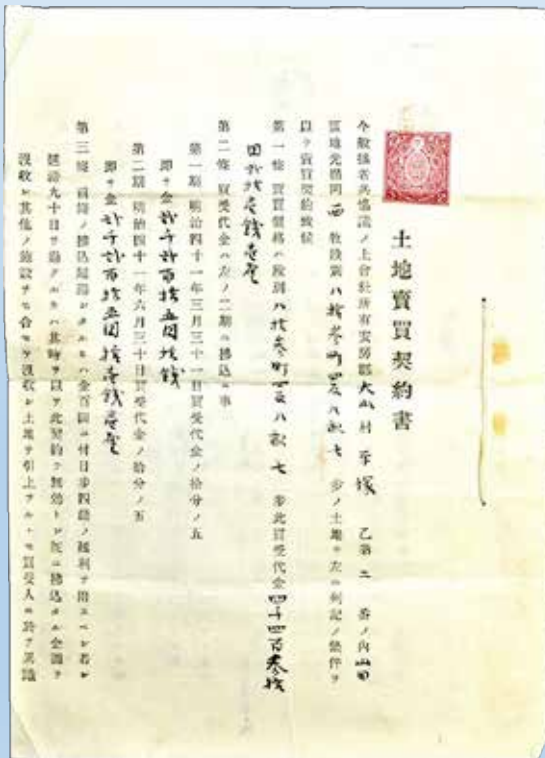 土地賣買契約書
今般協者共協議ノ上會社所有安房郡大山村平塚 乙第二 番ノ內山田
反別八拾參町四反八畝七 步ノ土地ヲ左ニ列記ノ條件ヲ
以テ賣買契約致候
第一條 賣買價格ハ段別八拾參町四反八畝七 步此買受代金四千四百參拾
第二條 買受代金ハ左ノ二期ニ拂込ム事
第一期 明治四十一年三月三十一日買受代金ノ拾分ノ五
卽チ金貳千貳百拾五圓拾錢
第二期 明治四十一年六月三十日買受代金ノ拾分ノ五
卽チ金貳千貳百拾五圓拾壹錢壹厘
第三條 前條ノ拂込ヲ金百圓ニ付日步四錢ノ利ヲ附スベシ若シ
九十日ヲ過クルハ其時ヲ以テ此契約ヲ無効トシ旣ニ拂込タル金圓ヲ
沒收シ其他ノ施設ヲモ合セテ沒收シ土地ヲ引上ケルモ買受人ニ於テ異議